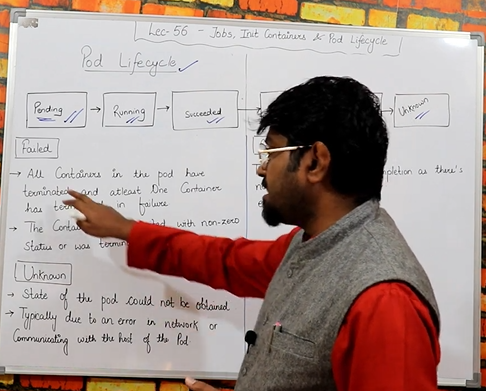 Lec-56 - Jobs, Init Containers & Pod Lifecycle
Pod Lifecycle
Pending → Running → Succeeded → → Unknown
Failed
→ All Containers in the pod have
terminated and atleast One Container
has in failure
→ The with non-zero
Status or was
Unknown
→ State of the pod could not be obtained
→ Typically due to an error in network or
Communicating with the host of the Pod
as there's